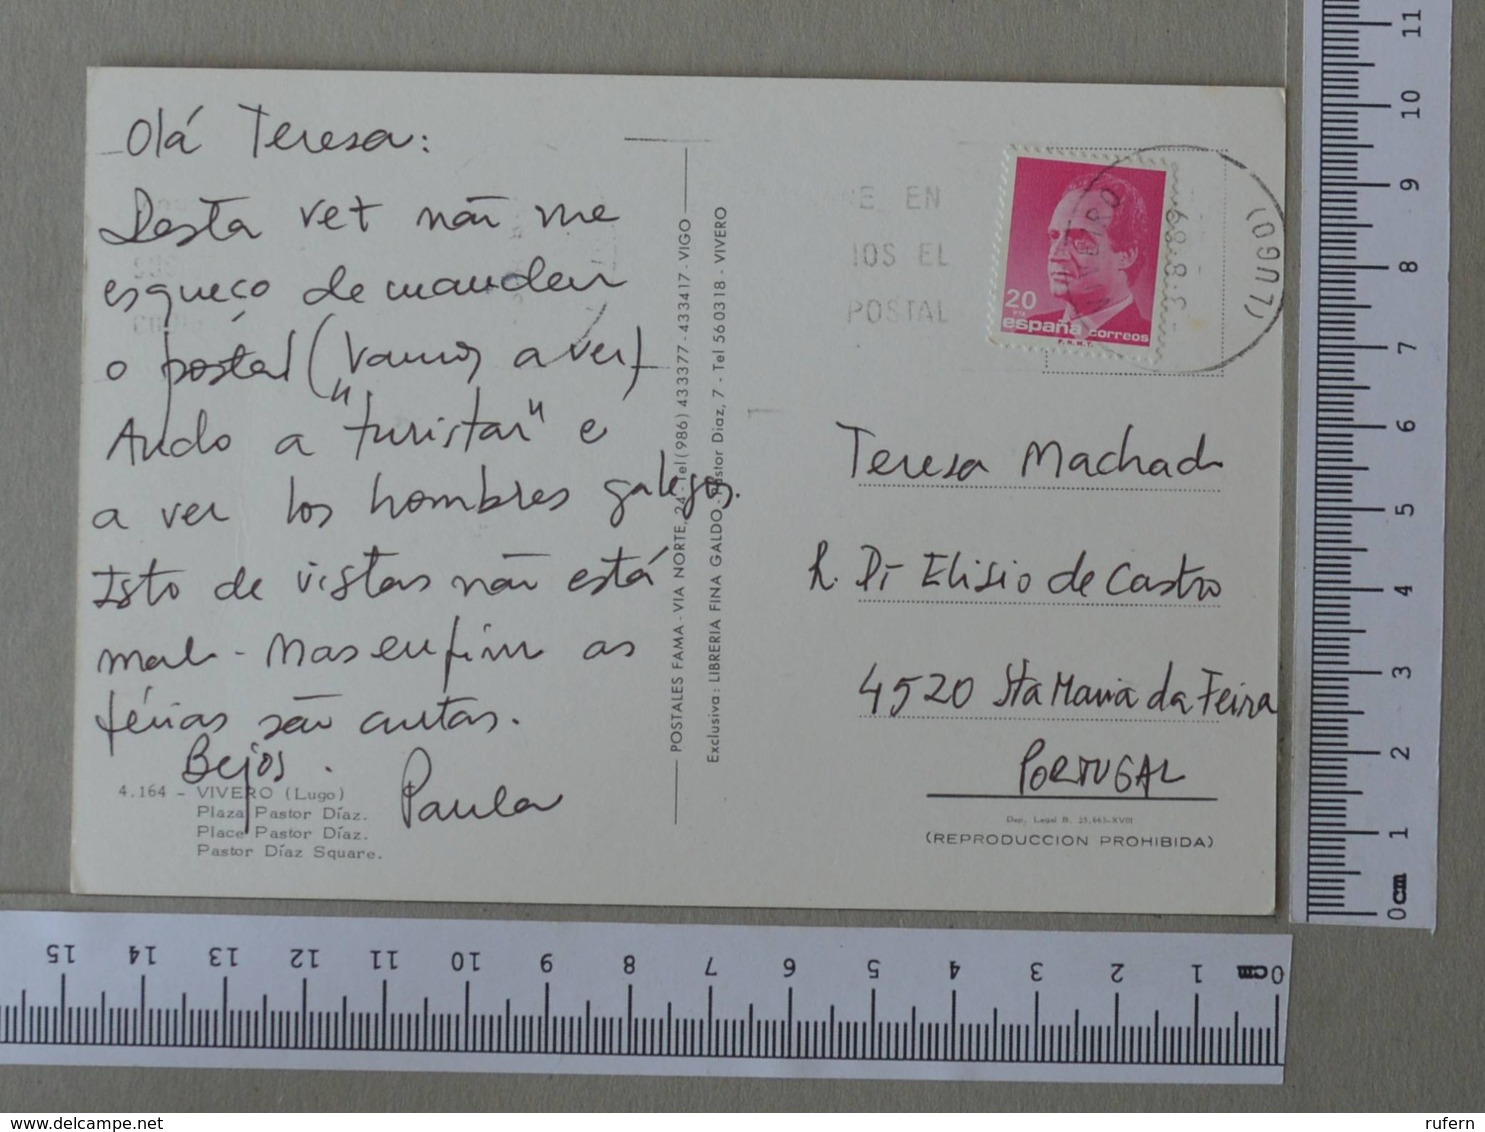 Olá Teresa:
Desta vez não me
esqueço de mandar
o postal (vamos a ver)
Ando a "turistar" e
a ver los hombres galegos.
Isto de vistas não está
mal - Mas enfim as
férias são curtas.
Bejos.
Paula
4.164 - VIVERO (Lugo)
Plaza Pastor Díaz.
Place Pastor Díaz.
Pastor Díaz Square.
POSTALES FAMA - VIA NORTE, 24 - Tel (986) 433377 - 433417 - VIGO
Exclusiva: LIBRERIA FINA GALDO - Pastor Diaz, 7 - Tel 560318 - VIVERO
E EN
IOS EL
POSTAL
VIVEIRO
(LUGO)
20
PTA
españa correos
F.N.M.T.
Teresa Machado
R. Dr Elisio de Castro
4520 Sta Maria da Feira
PORTUGAL
Dep. Legal B. 25.663-XVIII
(REPRODUCCION PROHIBIDA)
11
10
9
8
7
6
5
4
3
2
1
0cm
15 14 13 12 11 10 9 8 7 6 5 4 3 2 1 0cm
www.delcampe.net
rufern